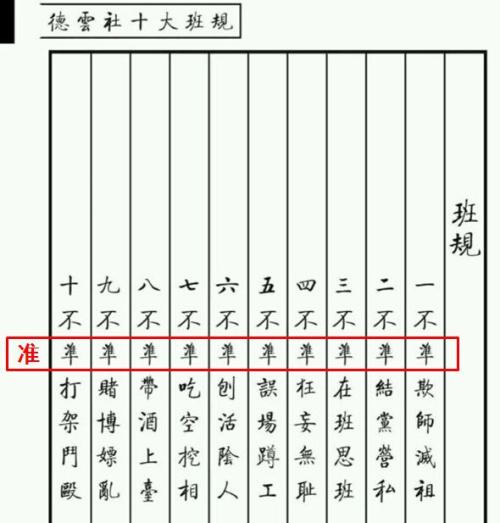 德雲社十大班規
班規
一不準欺師滅祖
二不準結黨營私
三不準在班思班
四不準狂妄無耻
五不準誤場蹲工
六不準刨活陰人
七不準吃空挖相
八不準帶酒上臺
九不準賭博嫖亂
十不準打架鬥毆
准